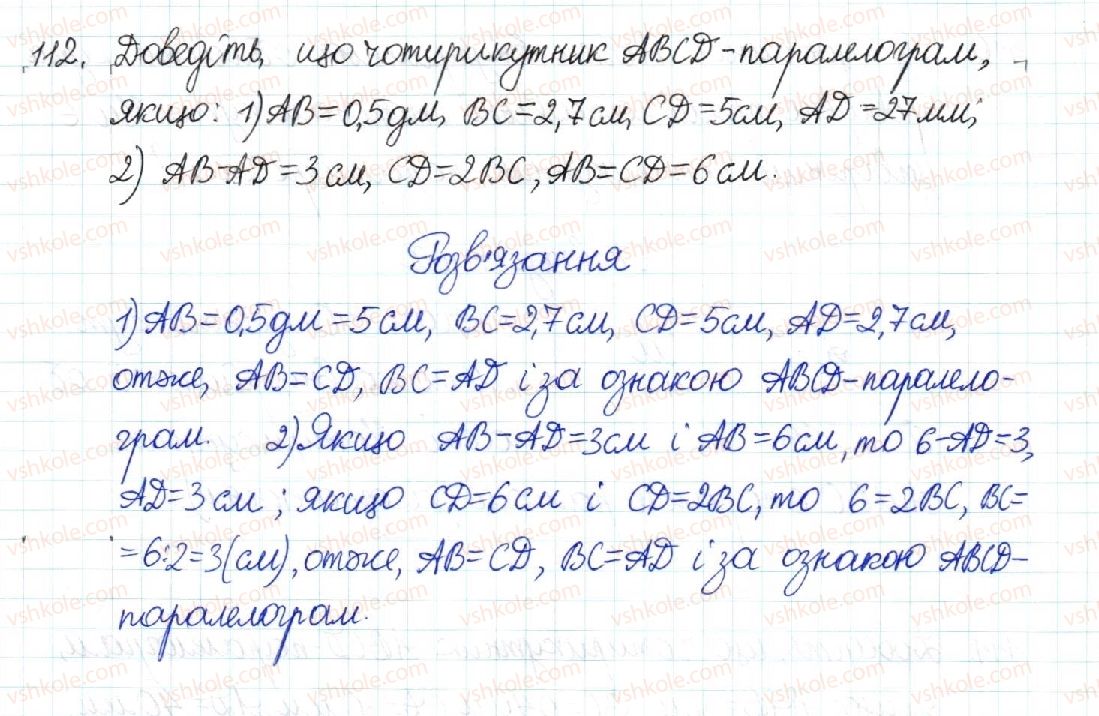 112. Доведіть, що чотирикутник ABCD - паралелограм,
якщо: 1) AB = 0,5 дм, BC = 2,7 см, CD = 5 см, AD = 27 мм;
2) AB - AD = 3 см, CD = 2BC, AB = CD = 6 см.
Розв'язання
1) AB = 0,5 дм = 5 см, BC = 2,7 см, CD = 5 см, AD = 2,7 см,
отже, AB = CD, BC = AD і за ознакою ABCD - паралело-
грам. 2) Якщо AB - AD = 3 см і AB = 6 см, то 6 - AD = 3,
AD = 3 см; якщо CD = 6 см і CD = 2BC, то 6 = 2BC, BC =
= 6:2 = 3 (см), отже, AB = CD, BC = AD і за ознакою ABCD -
паралелограм.